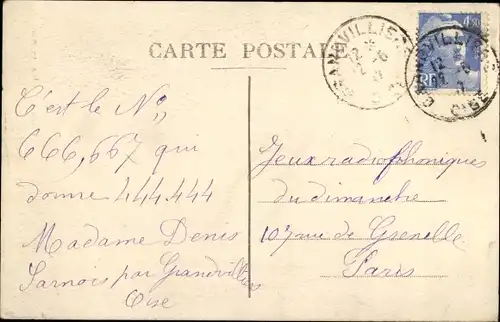 CARTE POSTALE
GRANDVILLIERS
OISE
RF
C'est le No
666,667 qui
donne 444.444
Madame Denis
Sarnois par Grandvilliers
Oise
Jeux radiophoniques
du dimanche
107 rue de Grenelle
Paris